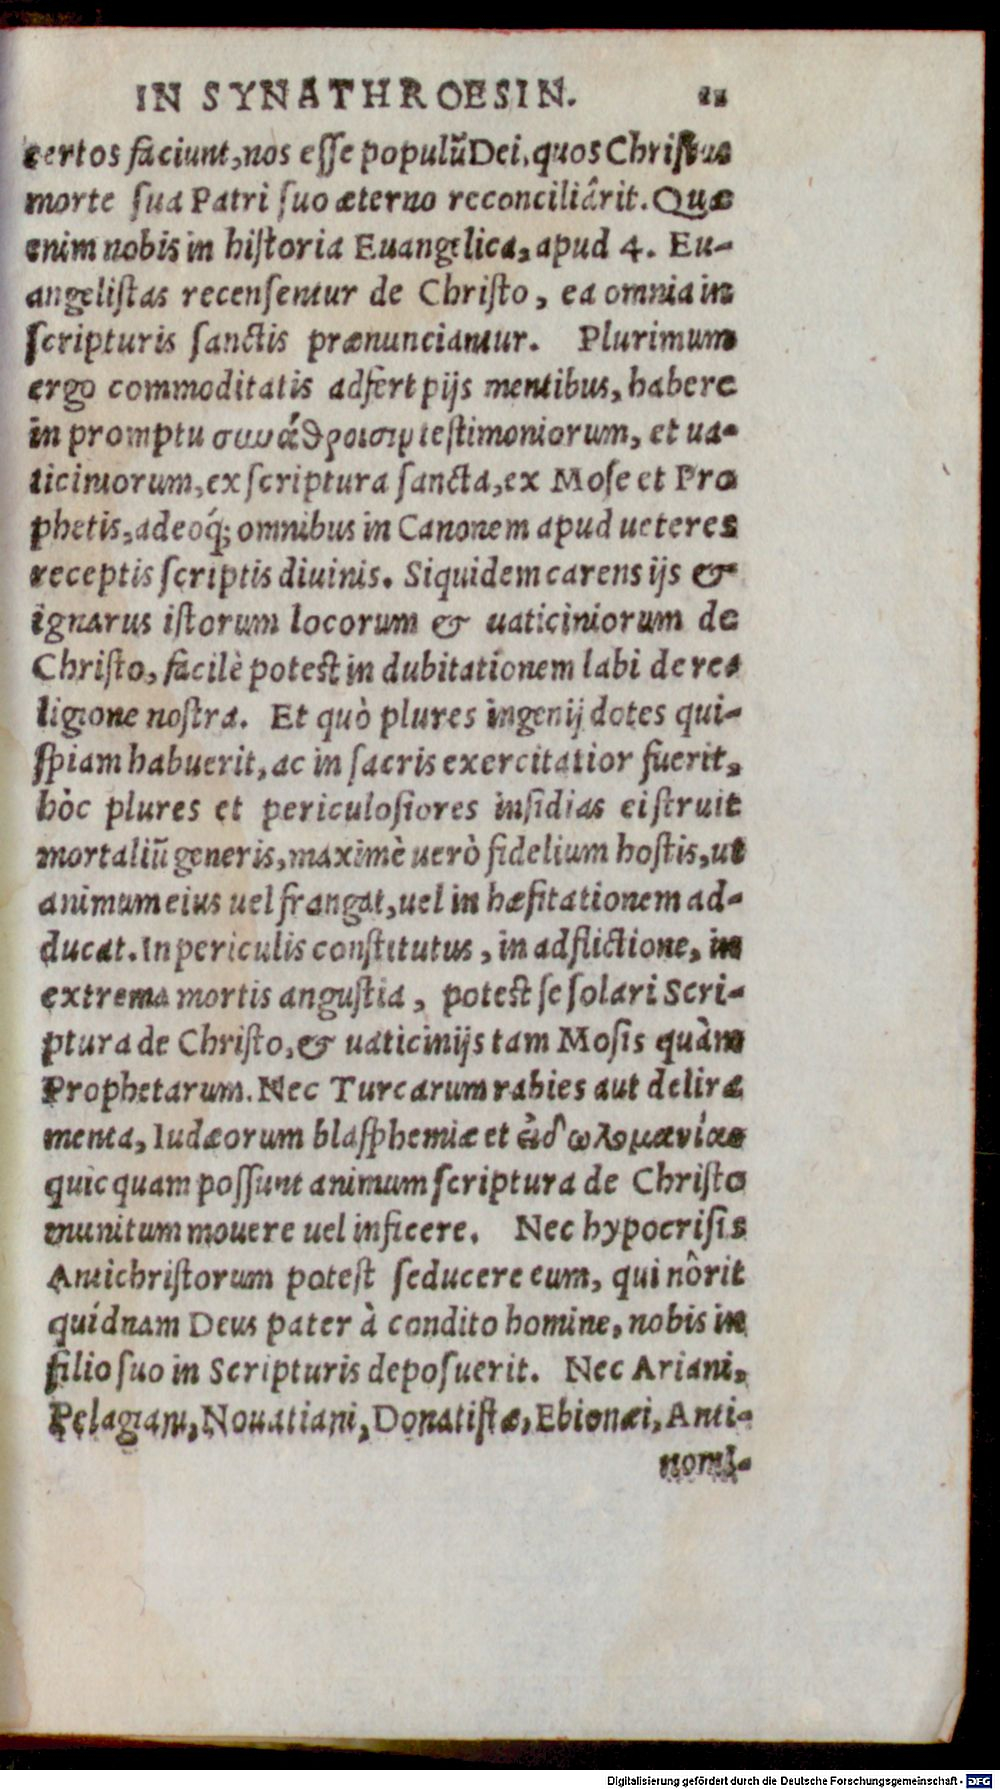 IN SYNATHROESIN. 11
certos faciunt, nos esse populũ Dei, quos Christus
morte sua Patri suo æterno reconciliârit. Quæ
enim nobis in historia Euangelica, apud 4. Eu-
angelistas recensentur de Christo, ea omnia in
scripturis sanctis prænunciantur. Plurimum
ergo commoditatis adfert pijs mentibus, habere
in promptu συναάθροισιν testimoniorum, et ua-
ticiniorum, ex scriptura sancta, ex Mose et Pro
phetis, adeoq́; omnibus in Canonem apud ueteres
receptis scriptis diuinis. Siquidem carens ijs &
ignarus istorum locorum & uaticiniorum de
Christo, facilè potest in dubitationem labi de re-
ligione nostra. Et quò plures ingenij dotes qui-
spiam habuerit, ac in sacris exercitatior fuerit,
hòc plures et periculosiores insidias ei struit
mortaliũ generis, maximè uerò fidelium hostis, ut
animum eius uel frangat, uel in hæsitationem ad-
ducat. In periculis constitutus, in adflictione, in
extrema mortis angustia, potest se solari Scri-
ptura de Christo, & uaticinijs tam Mosis quàm
Prophetarum. Nec Turcarum rabies aut delira
menta, Iudæorum blasphemiæ et εἰδωλομανίαι
quicquam possunt animum scriptura de Christo
munitum mouere uel inficere. Nec hypocrisis
Antichristorum potest seducere eum, qui nôrit
quídnam Deus pater à condito homine, nobis in
filio suo in Scripturis deposuerit. Nec Ariani,
Pelagiani, Nouatiani, Donatistæ, Ebionæi, Anti-
nomi-
Digitalisierung gefördert durch die Deutsche Forschungsgemeinschaft - DFG